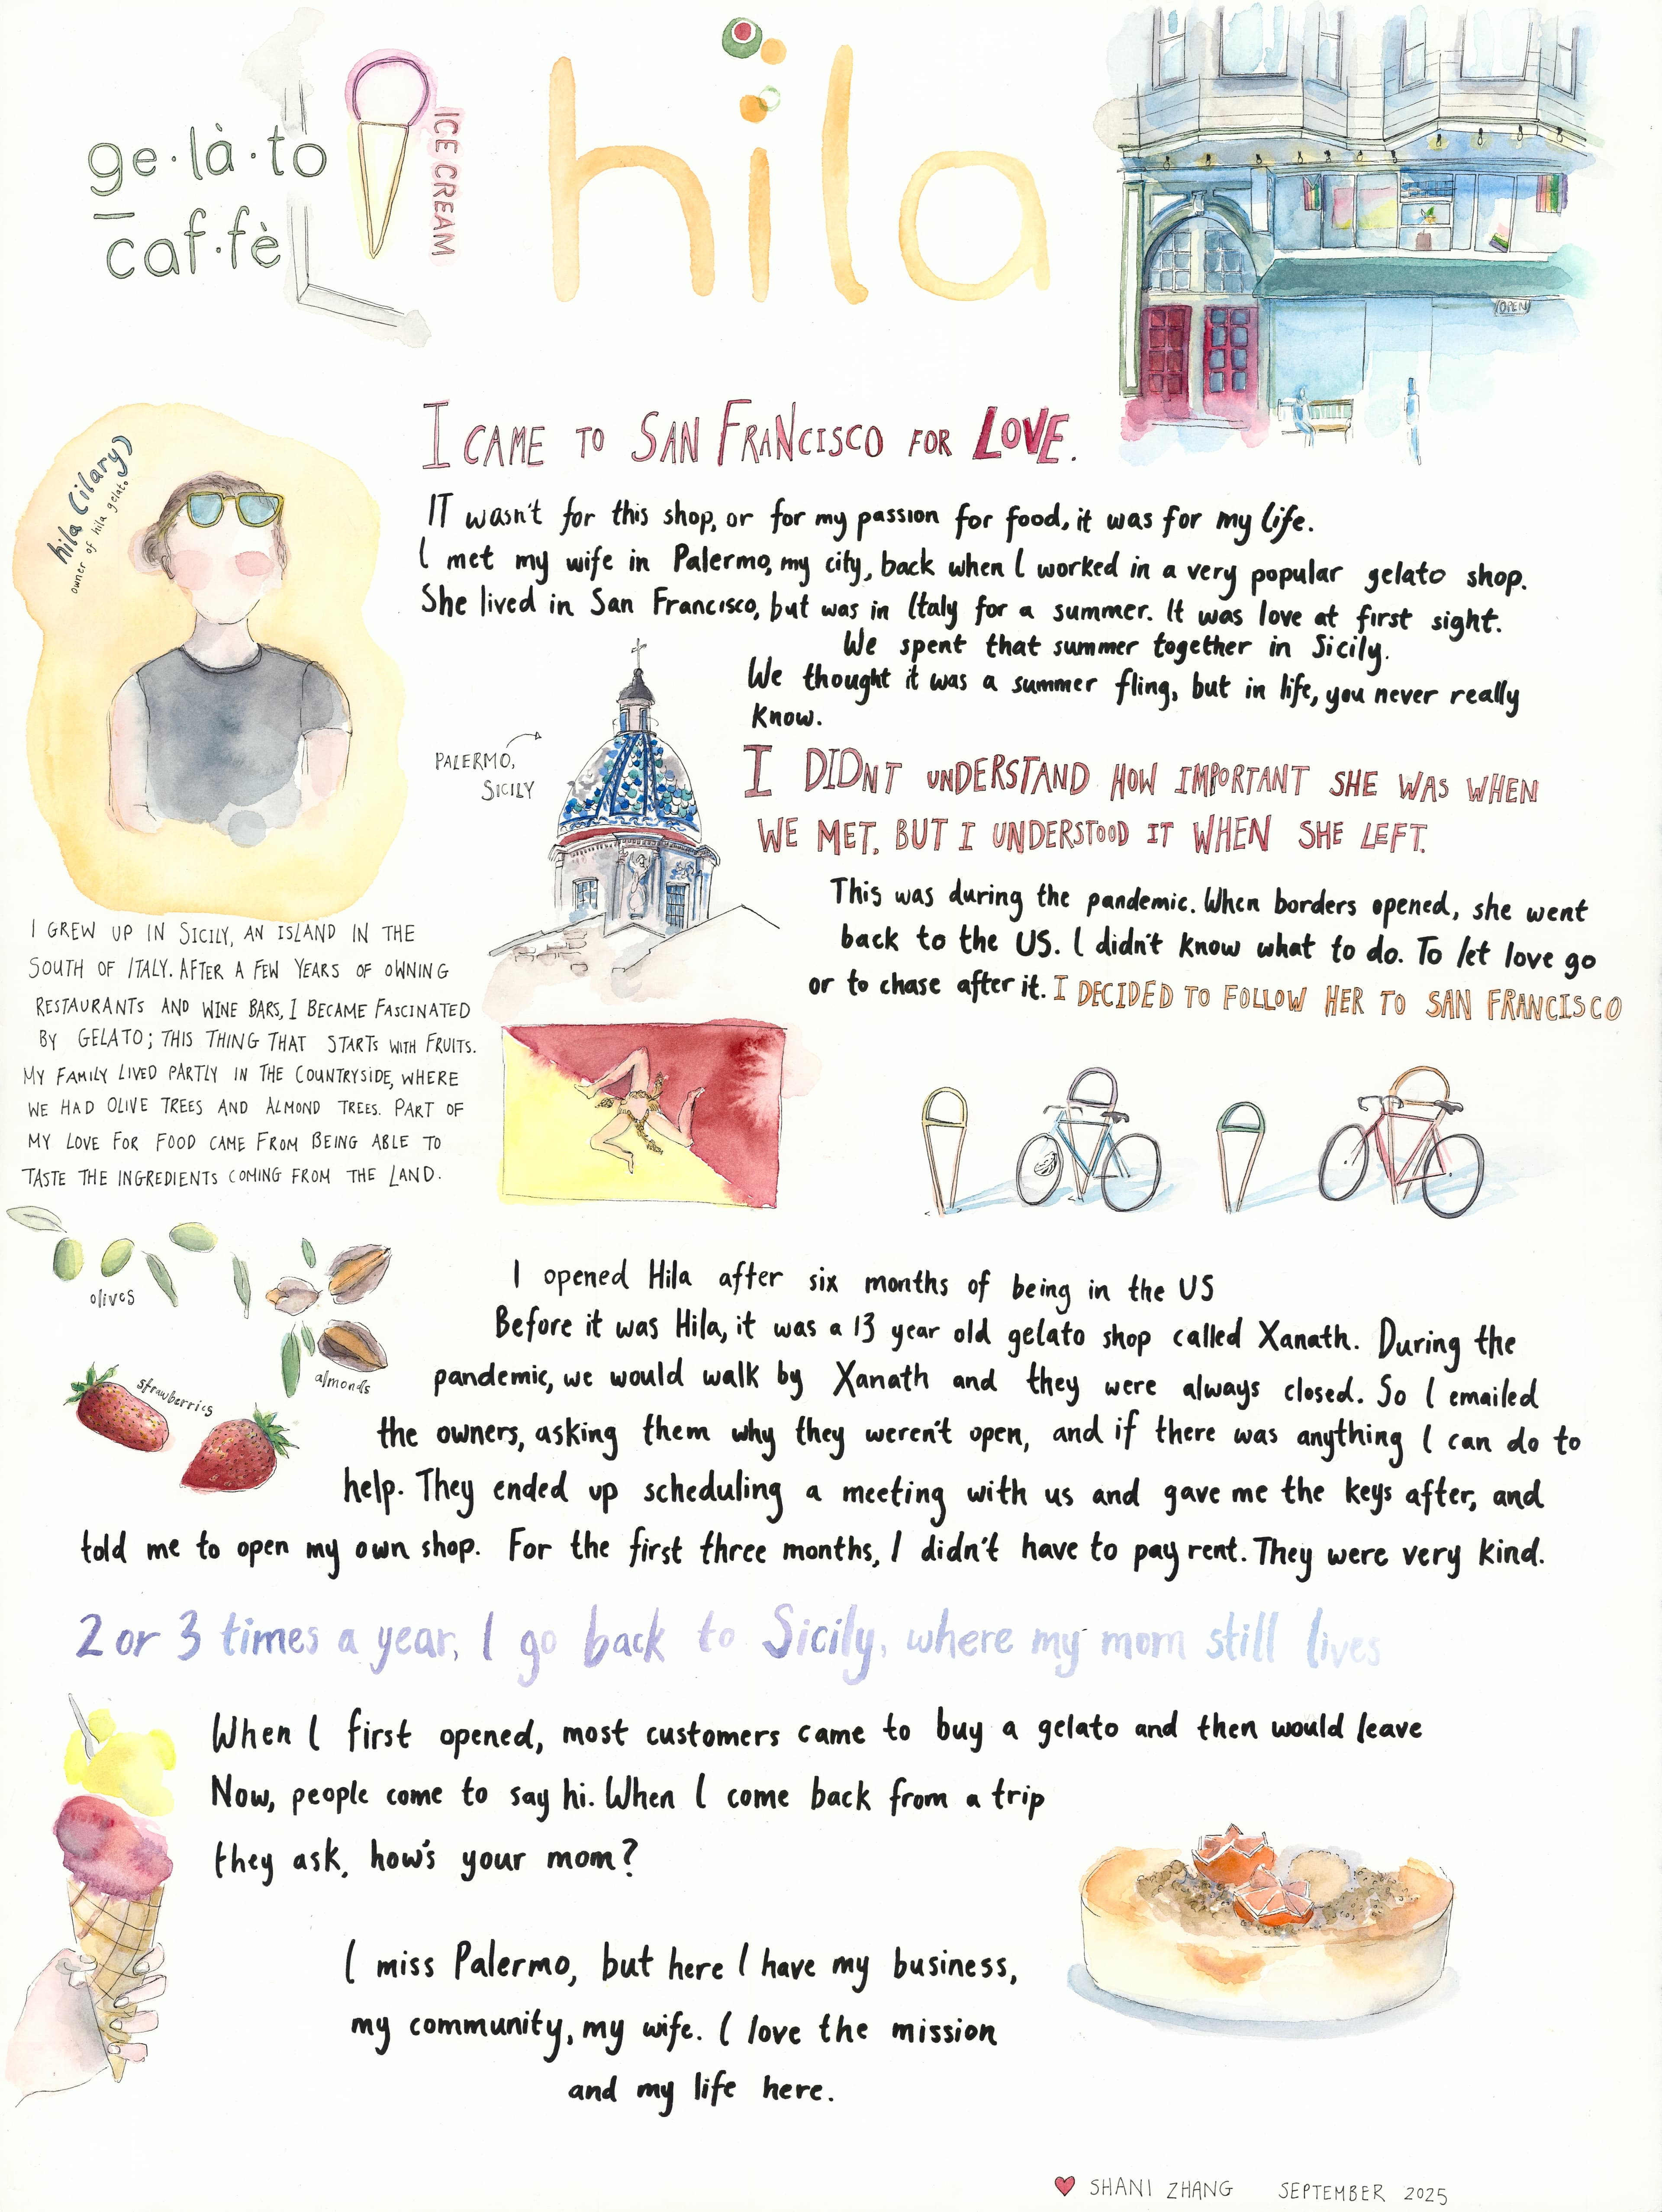 ge·là·to
caf·fè
ICE CREAM
hila
OPEN
I CAME TO SAN FRANCISCO FOR LOVE.
hila (ilary)
owner of hila gelato
IT wasn't for this shop, or for my passion for food, it was for my life.
I met my wife in Palermo, my city, back when I worked in a very popular gelato shop.
She lived in San Francisco, but was in Italy for a summer. It was love at first sight.
We spent that summer together in Sicily.
We thought it was a summer fling, but in life, you never really
know.
PALERMO,
SICILY
I DIDNT UNDERSTAND HOW IMPORTANT SHE WAS WHEN
WE MET, BUT I UNDERSTOOD IT WHEN SHE LEFT.
This was during the pandemic. When borders opened, she went
back to the US. I didn't know what to do. To let love go
or to chase after it. I DECIDED TO FOLLOW HER TO SAN FRANCISCO
I GREW UP IN SICILY, AN ISLAND IN THE
SOUTH OF ITALY. AFTER A FEW YEARS OF OWNING
RESTAURANTS AND WINE BARS, I BECAME FASCINATED
BY GELATO; THIS THING THAT STARTS WITH FRUITS.
MY FAMILY LIVED PARTLY IN THE COUNTRYSIDE, WHERE
WE HAD OLIVE TREES AND ALMOND TREES. PART OF
MY LOVE FOR FOOD CAME FROM BEING ABLE TO
TASTE THE INGREDIENTS COMING FROM THE LAND.
olives
almonds
strawberries
I opened Hila after six months of being in the US
Before it was Hila, it was a 13 year old gelato shop called Xanath. During the
pandemic, we would walk by Xanath and they were always closed. So I emailed
the owners, asking them why they weren't open, and if there was anything I can do to
help. They ended up scheduling a meeting with us and gave me the keys after, and
told me to open my own shop. For the first three months, I didn't have to pay rent. They were very kind.
2 or 3 times a year, I go back to Sicily, where my mom still lives
When I first opened, most customers came to buy a gelato and then would leave
Now, people come to say hi. When I come back from a trip
they ask, how's your mom?
I miss Palermo, but here I have my business,
my community, my wife. I love the mission
and my life here.
SHANI ZHANG SEPTEMBER 2025